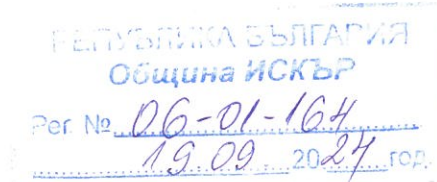 РЕПУБЛИКА БЪЛГАРИЯ
Община ИСКЪР
Рег. № 06-01-164
19.09. 2024 год.